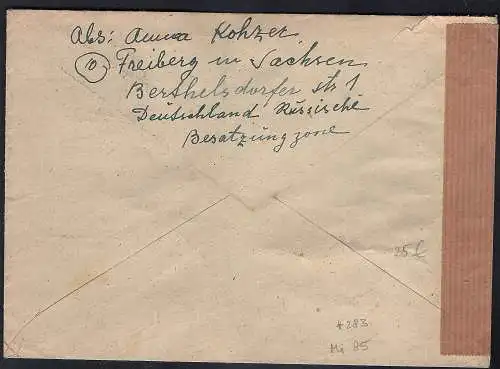 Abs: Anna Kohzer
(10) Freiberg in Sachsen
Berthelsdorfer str 1
Deutschland Russische
Besatzungzone
25
+283
Mi 85